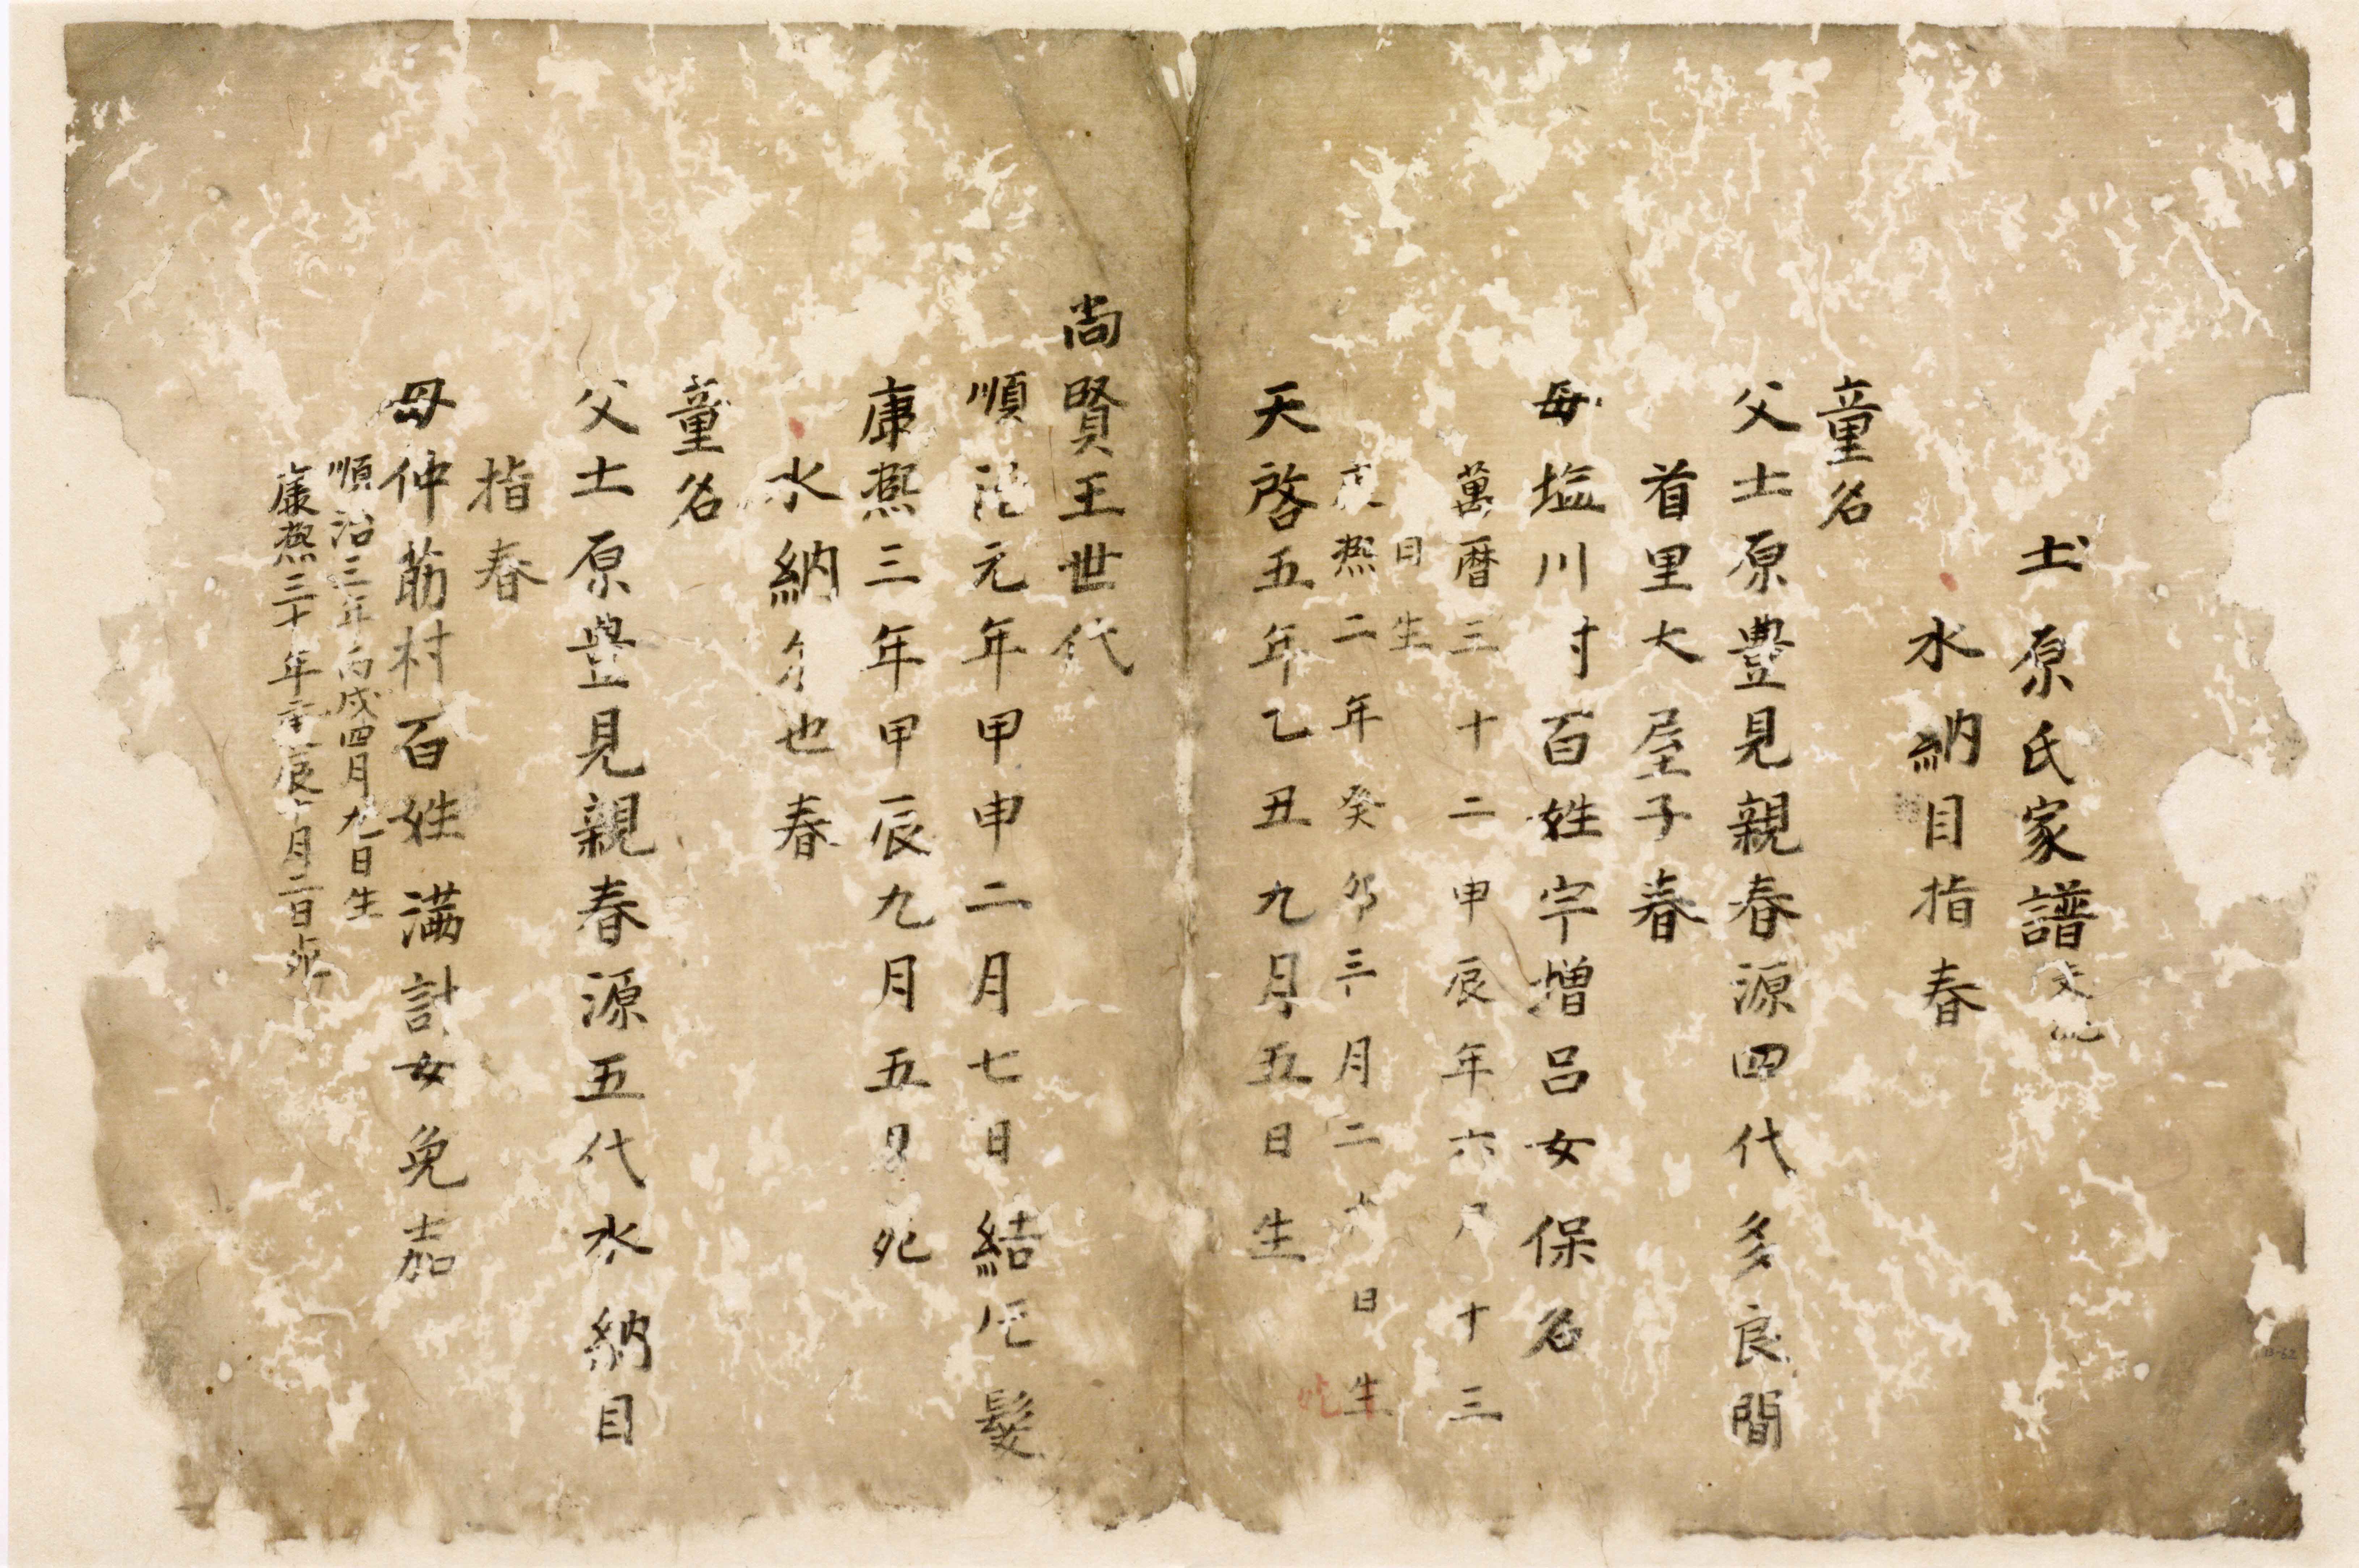 土原氏家譜支
水納目指春
童名
父土原豊見親春源四代多良間
首里大屋子春
母塩川村百姓宇増呂女保名
萬暦三十二甲辰年六月十三
日生
康熙二年癸卯三月二六日生
天啓五年乙丑九月五日生
尚賢王世代
順治元年甲申二月七日結髪
康熙三年甲辰九月五日死
水納也春
童名
父土原豊見親春源五代水納目
指春
母仲筋村百姓満計女免嘉
順治三年丙戌四月九日生
康熙三十年辰十月二日